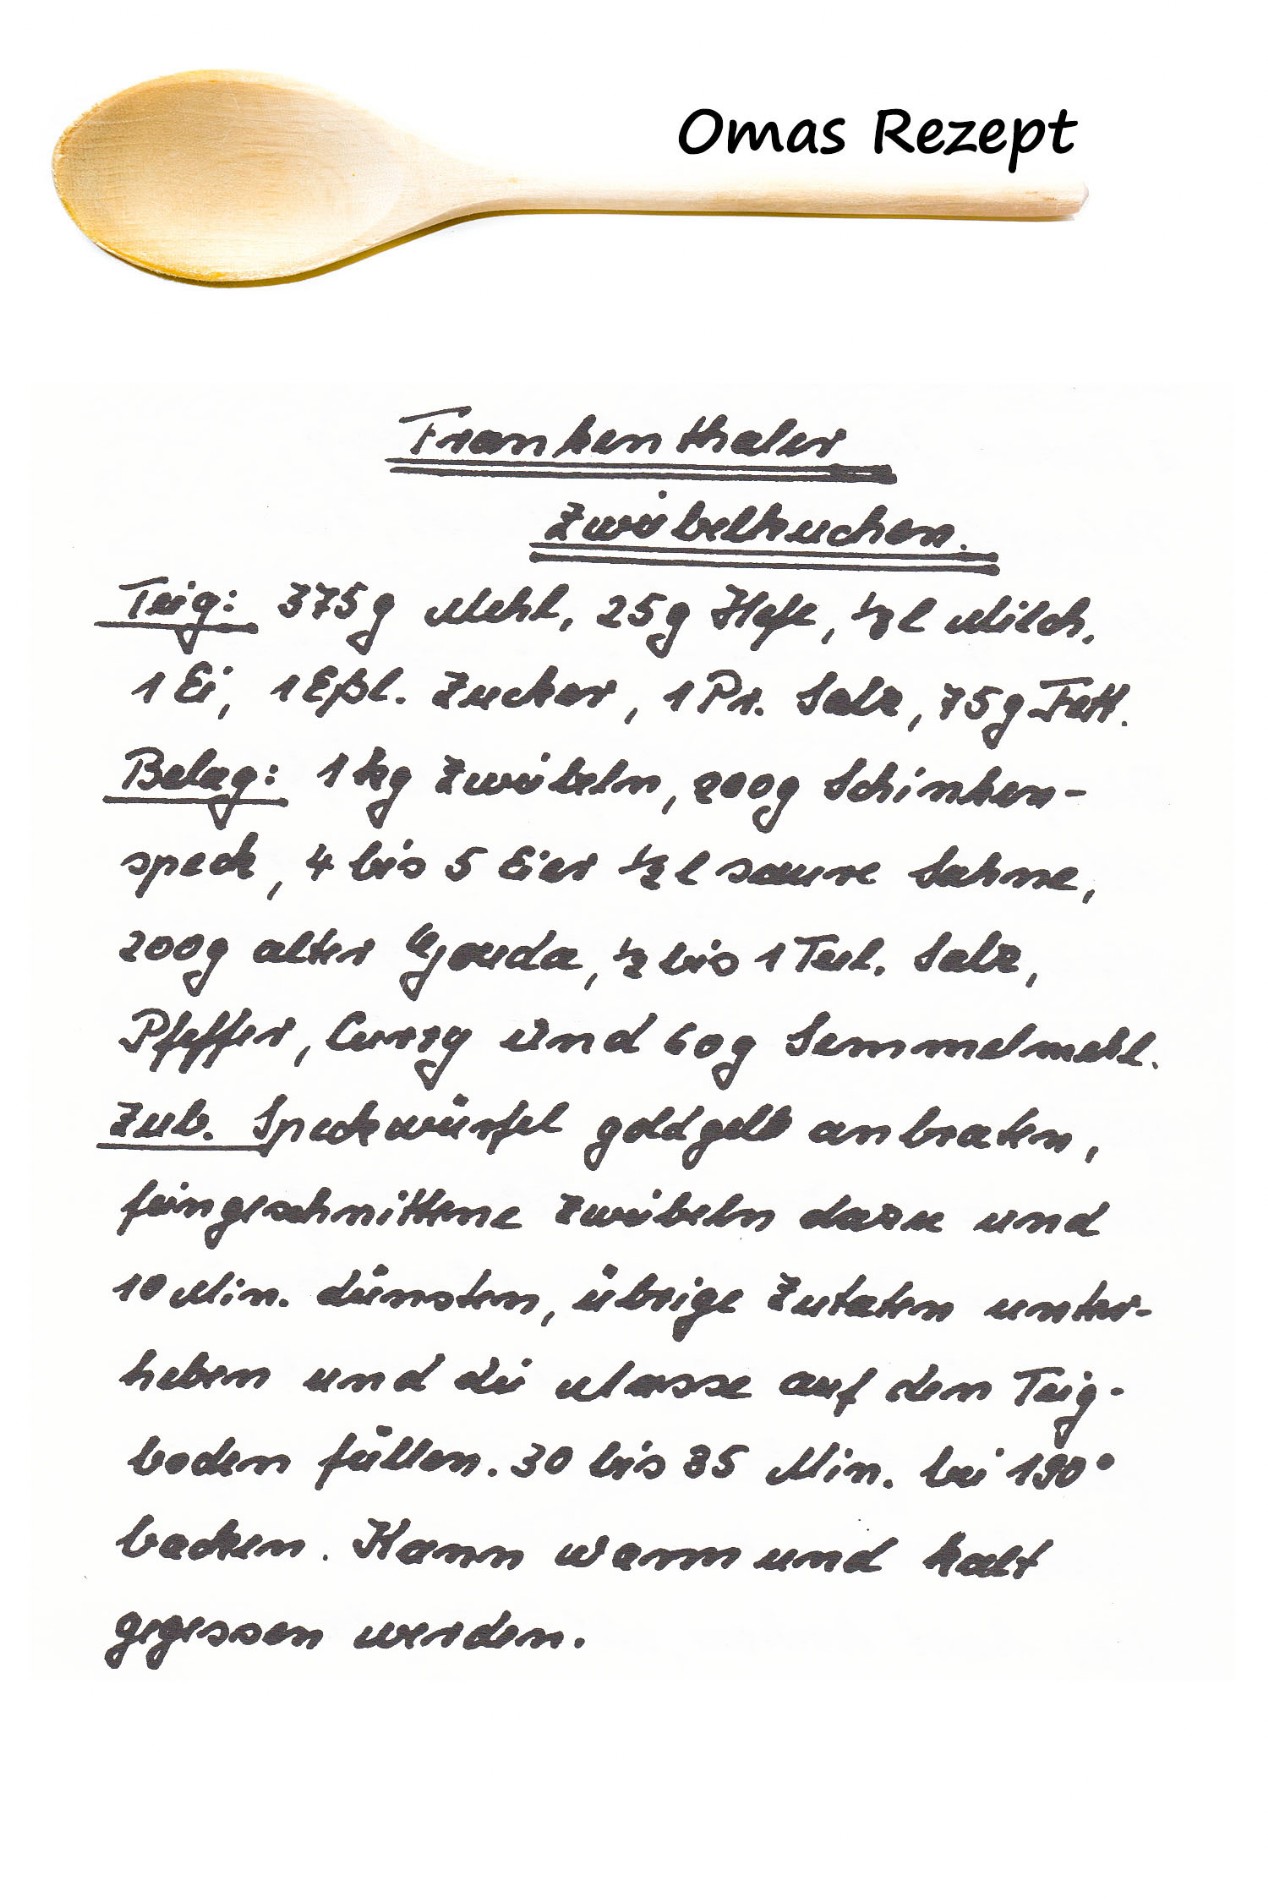 Omas Rezept
Frankenthaler
Zwiebelkuchen.
Teig: 375g Mehl, 25g Hefe, 1/8 l Milch,
1 Ei, 1 Eßl. Zucker, 1 Pr. Salz, 75g Fett.
Belag: 1 kg Zwiebeln, 200g Schinken-
speck, 4 bis 5 Eier 1/2 l saure Sahne,
200g alter Gouda, 1/2 bis 1 Teel. Salz,
Pfeffer, Curry und 60g Semmelmehl.
Zub. Speckwürfel goldgelb anbraten,
feingeschnittene Zwiebeln dazu und
10 Min. dünsten, übrige Zutaten unter-
heben und die Masse auf den Teig-
boden füllen. 30 bis 35 Min. bei 190°
backen. Kann warm und kalt
gegessen werden.